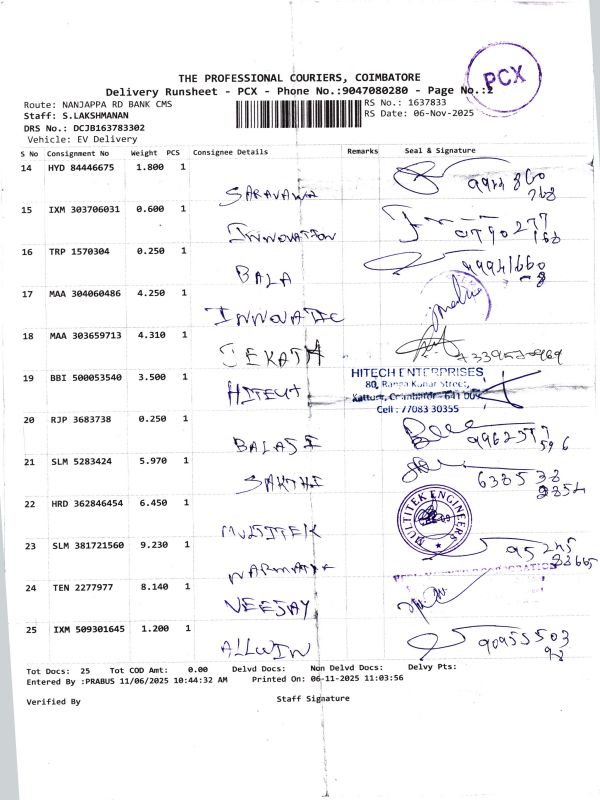 PCX
THE PROFESSIONAL COURIERS, COIMBATORE
Delivery Runsheet - PCX - Phone No.:9047080280 - Page No.:2
Route: NANJAPPA RD BANK CMS
RS No.: 1637833
Staff: S.LAKSHMANAN
RS Date: 06-Nov-2025
DRS No.: DCJB163783302
Vehicle: EV Delivery
S No Consignment No Weight PCS Consignee Details Remarks Seal & Signature
14 HYD 84446675 1.800 1
SARAVANA
15 IXM 303706031 0.600 1
INNOVATION
16 TRP 1570304 0.250 1
BALA
17 MAA 304060486 4.250 1
INNOVATIC
18 MAA 303659713 4.310 1
19 BBI 500053540 3.500 1
HITECH
HITECH ENTERPRISES
80, Ranga Konar Street,
Kattur, Coimbatore - 641 009
Cell : 77083 30355
20 RJP 3683738 0.250 1
BALAJI
21 SLM 5283424 5.970 1
SAKTHI
22 HRD 362846454 6.450 1
MULTITEK
MULTITEK ENGINEERS
23 SLM 381721560 9.230 1
24 TEN 2277977 8.140 1
VEEJAY
25 IXM 509301645 1.200 1
ALLWIN
Tot Docs: 25 Tot COD Amt: 0.00 Delvd Docs: Non Delvd Docs: Delvy Pts:
Entered By :PRABUS 11/06/2025 10:44:32 AM Printed On: 06-11-2025 11:03:56
Verified By
Staff Signature